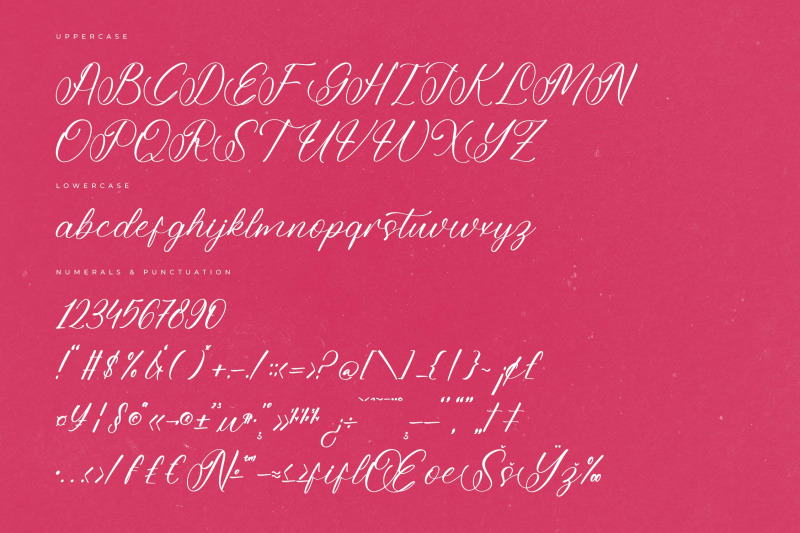 UPPERCASE
ABCDEFGHIJKLMN
OPQRSTUVWXYZ
LOWERCASE
abcdefghijklmnopqrstuvwxyz
NUMERALS & PUNCTUATION
1234567890
!"#$%&'()*+,-./:;<=>?@[\]_{|}~¡¢£
¤¥¦§©ª«¬®±²³µ¶·¸¹º»¼½¾¿÷˘ˇ^~¯¨˚¸–—‘’‚“”„†‡
•…‹›/ƒ₤€№™−≈≤≥fiflŒœŠšŸž‰